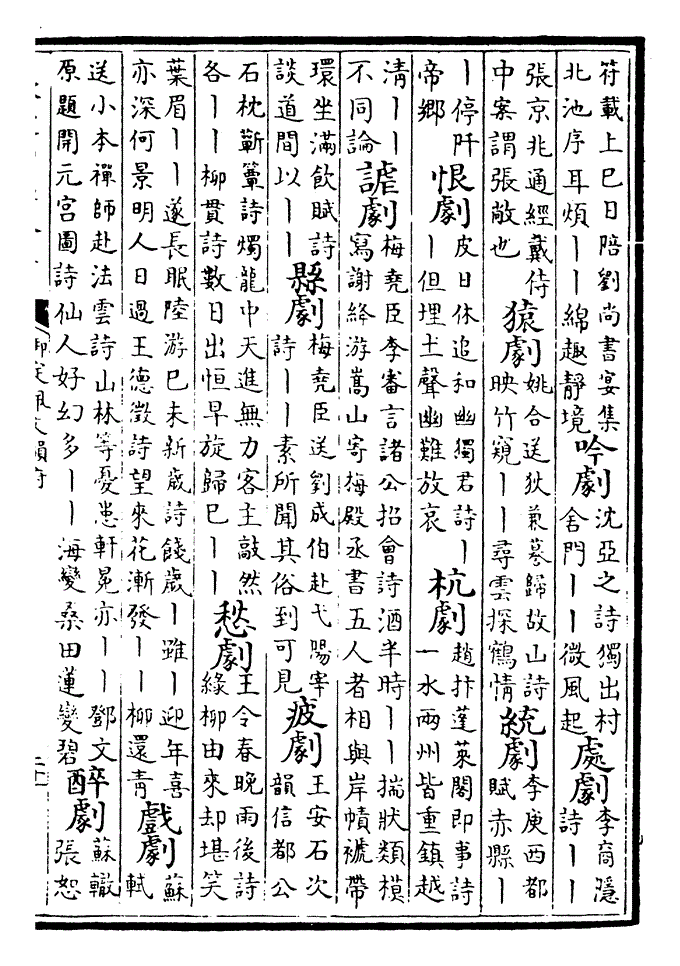 符載上巳日陪劉尚書宴集
北池序耳煩丨丨綿趣靜境
吟劇
沈亞之詩獨出村
舍門丨丨微風起
處劇
李商隱
詩丨丨
張京兆通經戴侍
中案謂張敞也
猿劇
姚合送狄兼謩歸故山詩
映竹窺丨丨尋雲探鶴情
統劇
李庾西都
賦赤縣丨
丨停阡
帝鄉
恨劇
皮日休追和幽獨君詩丨
丨但埋土聲幽難放哀
杭劇
趙抃蓬萊閣即事詩
一水兩州皆重鎮越
淸丨丨
不同論
謔劇
梅堯臣李審言諸公招會詩酒半時丨丨揣狀類模
寫謝絳游嵩山寄梅殿丞書五人者相與岸幘褫帶
環坐滿飮賦詩
談道間以丨丨
縣劇
梅堯臣送劉成伯赴弋陽宰
詩丨丨素所聞其俗到可見
疲劇
王安石次
韻信都公
石枕蘄簟詩燭龍中天進無力客主敲然
各丨丨柳貫詩數日出恒早旋歸巳丨丨
愁劇
王令春晚雨後詩
綠柳由來却堪笑
葉眉丨丨遂長眠陸游巳未新歲詩餞歲丨雖丨迎年喜
亦深何景明人日過王德徵詩望來花漸發丨丨柳還靑
戲劇
蘇
軾
送小本禪師赴法雲詩山林等憂患軒冕亦丨丨鄧文
原題開元宮圖詩仙人好幻多丨丨海變桑田蓮變碧
醉劇
蘇轍
張恕